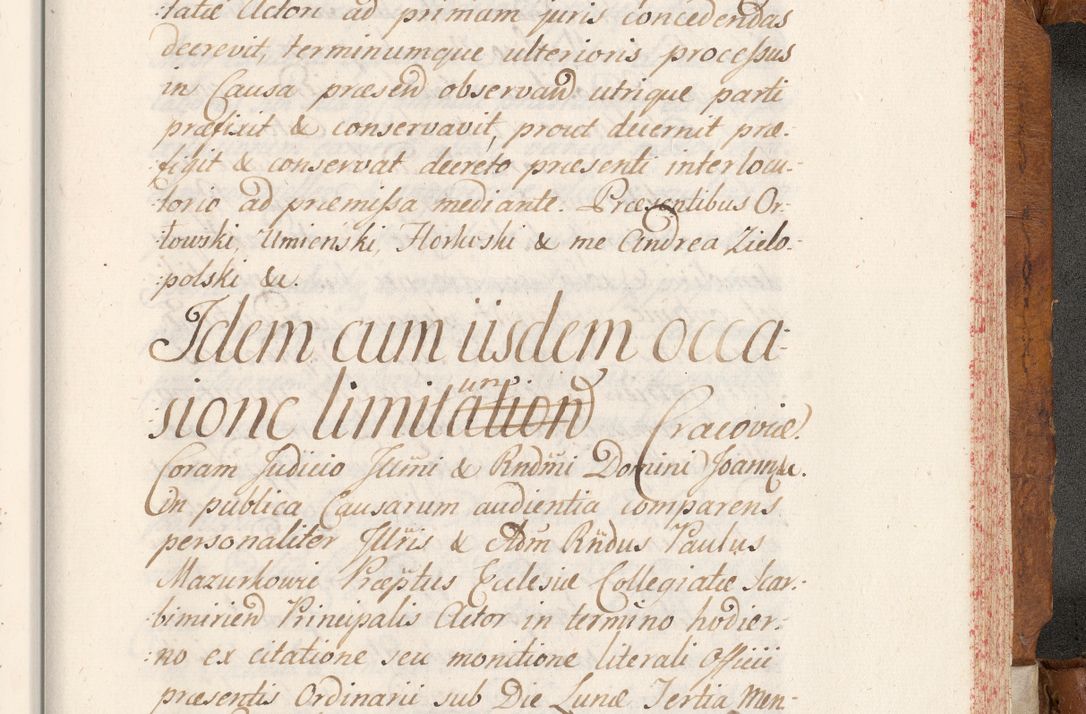 :tatæ Actori ad primam juris concedendas
decrevit, terminumque ulterioris processus
in Causa præsend observand utrique parti
præfixit & conservavit, prout decernit præ-
:figit & conservat decreto præsenti interlocu-
:torio ad præmissa mediante. Præsentibus Or-
:towski, Umienski, Florkwski & me Andrea Zielo-
:polski &c.
Idem cum iisdem occa-
:sione limitation Cracoviæ.
Coram Judicio Illmi & Rndmi Domini Joannis &c.
in publica Causarum audientia comparens
personaliter Illris & Adm Rndus Paulus
Mazurkowic Præptus Eclesiæ Collegiatæ Scar-
:bimirien Principalis Actor in termino hodier-
:no ex citatione seu monitione literali Officii
præsentis Ordinarii sub Die Lunæ Tertia Men-